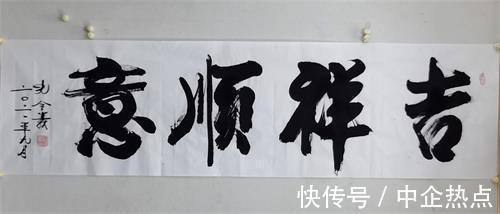 吉祥顺意
二〇二一年九月
快传号 / 中企热点